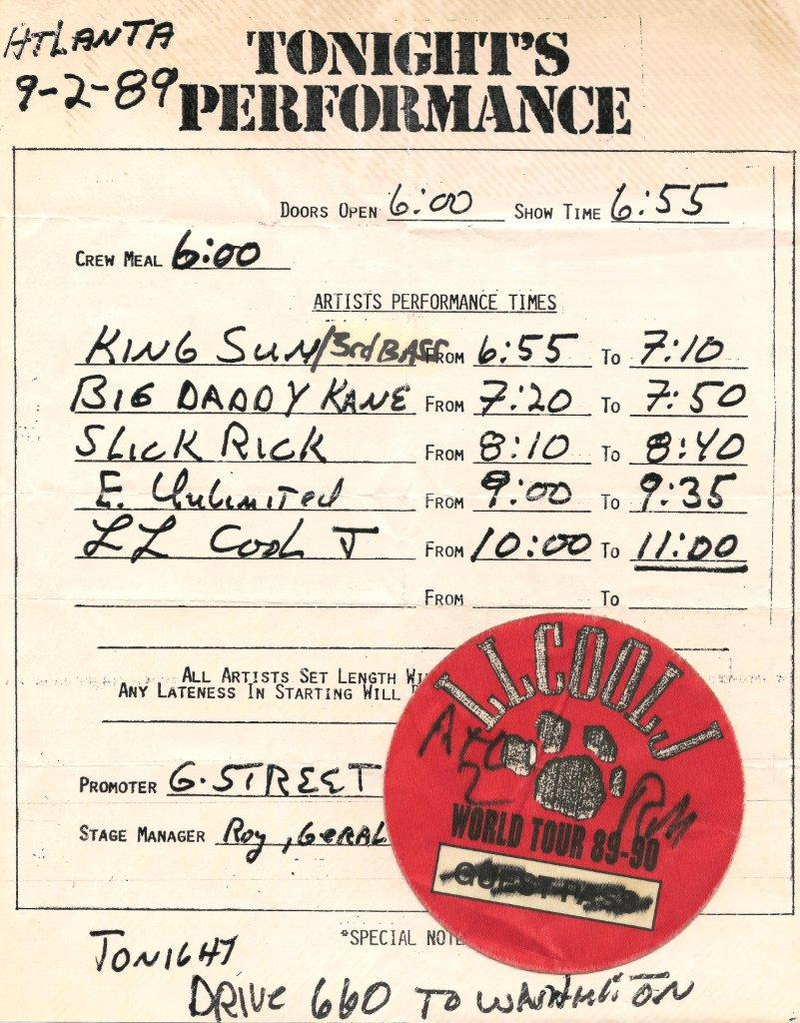 ATLANTA
9-2-89
TONIGHT'S
PERFORMANCE
DOORS OPEN 6:00 SHOW TIME 6:55
CREW MEAL 6:00
ARTISTS PERFORMANCE TIMES
KING SUN/3rd BASE FROM 6:55 TO 7:10
BIG DADDY KANE FROM 7:20 TO 7:50
SLICK RICK FROM 8:10 TO 8:40
E. Unlimited FROM 9:00 TO 9:35
LL Cool J FROM 10:00 TO 11:00
FROM TO
ALL ARTISTS SET LENGTH
ANY LATENESS IN STARTING WILL
PROMOTER G. STREET
STAGE MANAGER Roy, GERAL
LL COOL J
WORLD TOUR 89-90
GUEST PASS
*SPECIAL NOTE
TONIGHT
DRIVE 660 TO WASHINGTON